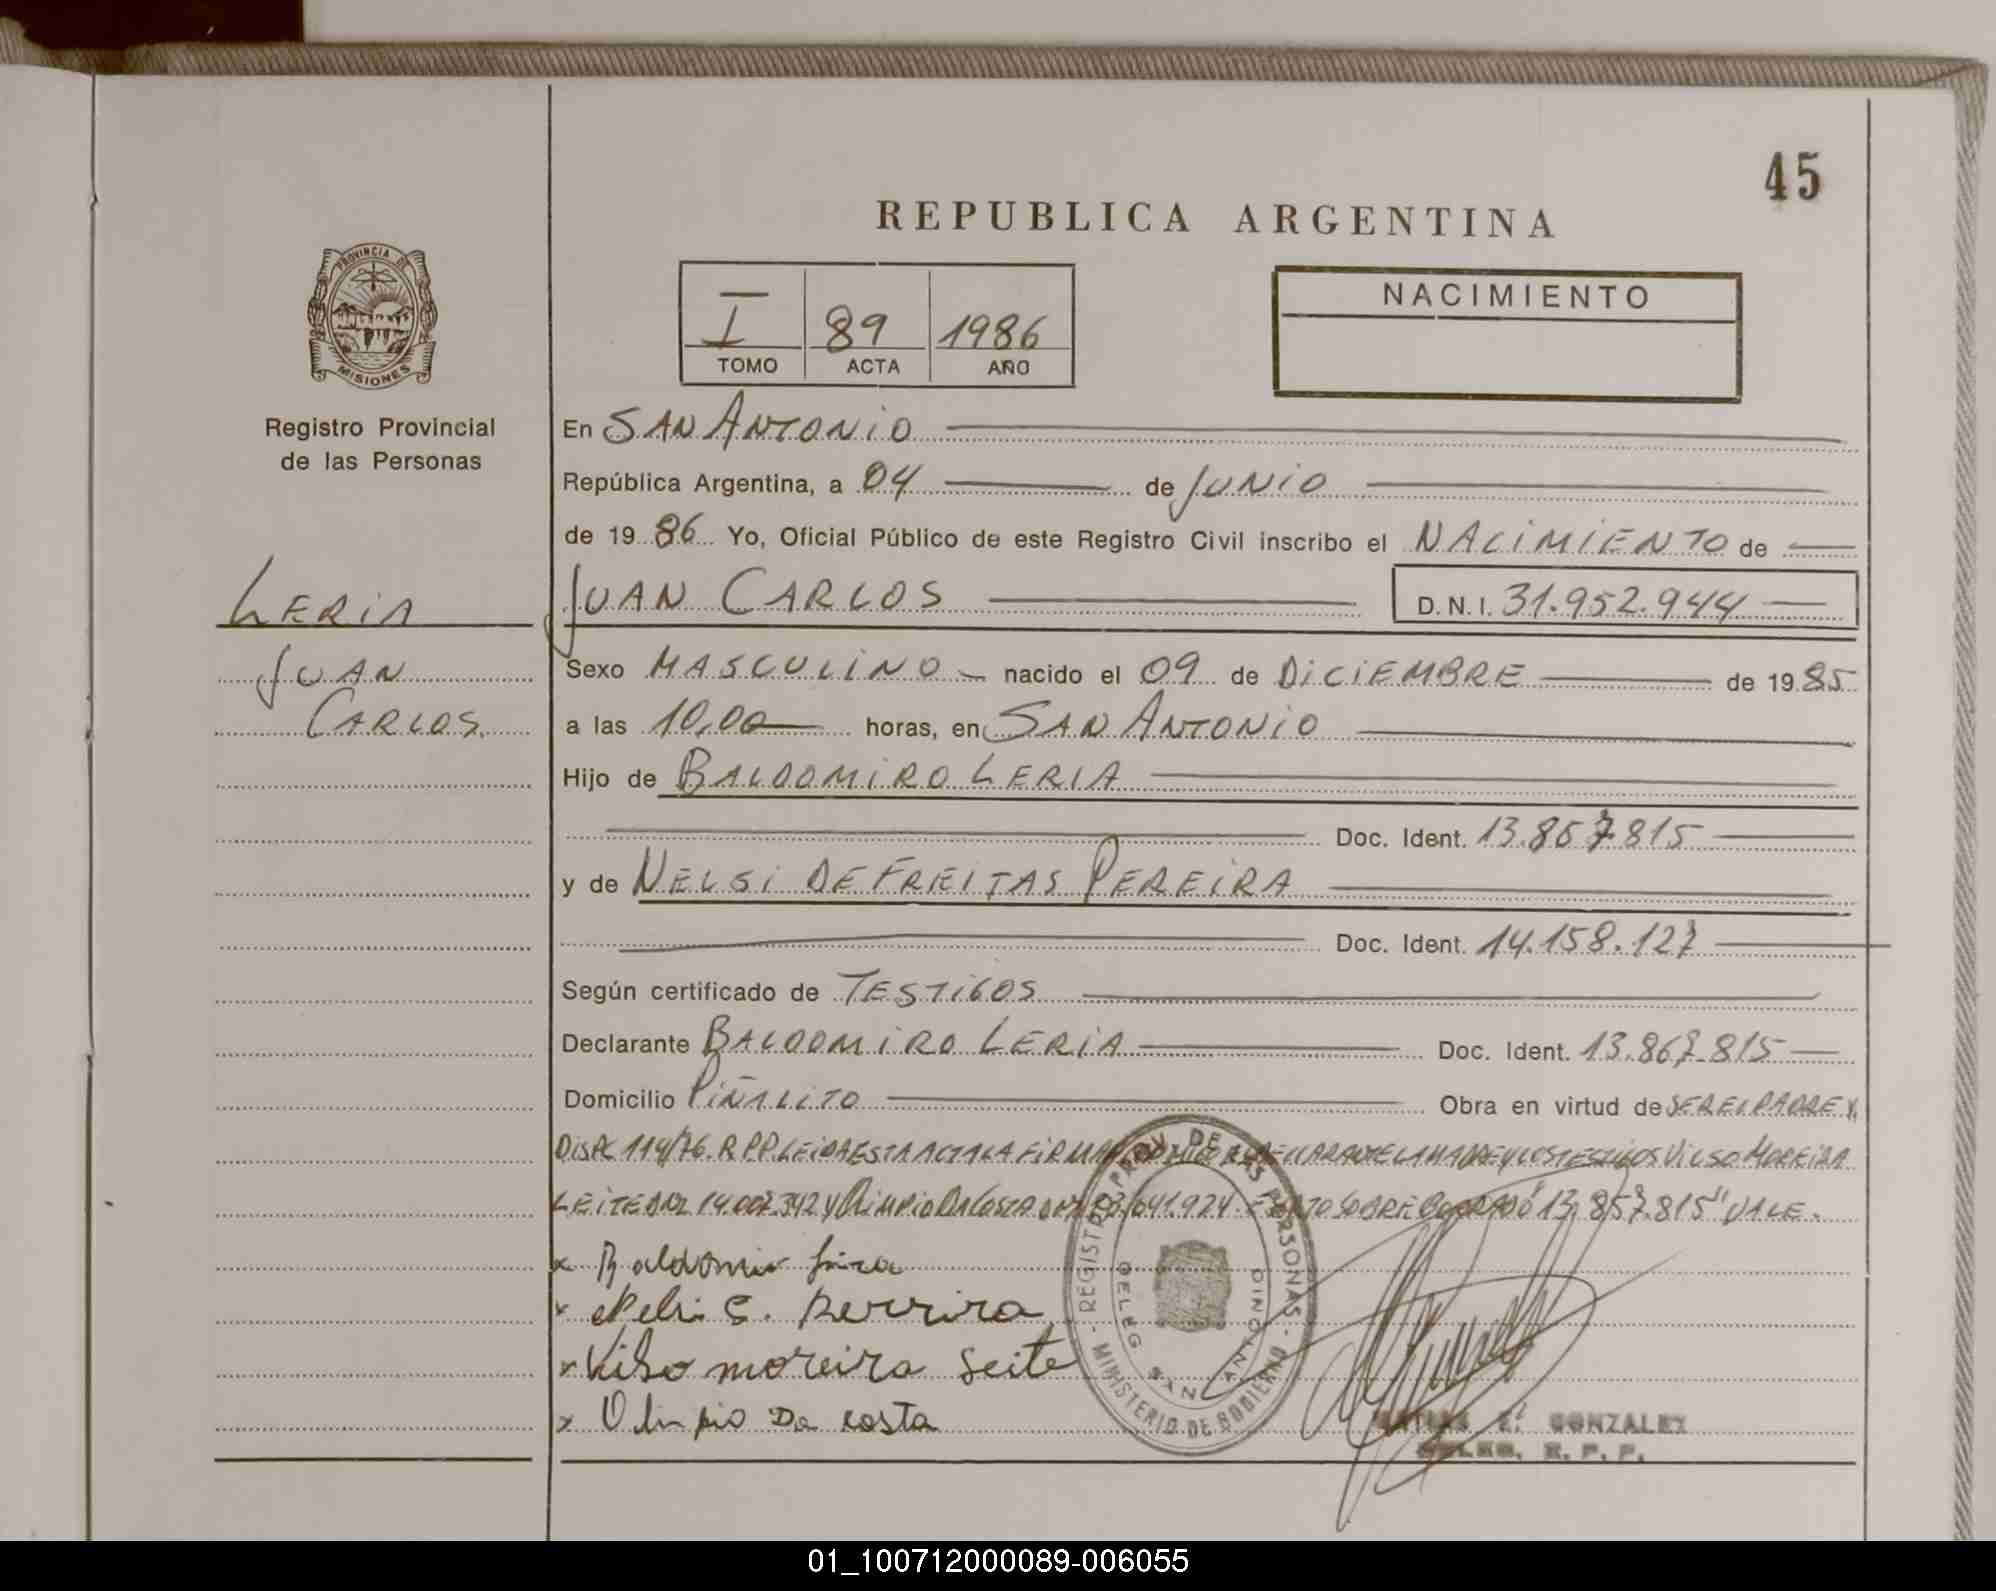 45
REPUBLICA ARGENTINA
PROVINCIA DE
MISIONES
Registro Provincial
de las Personas
I 89 1986
TOMO ACTA AÑO
NACIMIENTO
En SAN ANTONIO
República Argentina, a 04 de JUNIO
de 19 86 Yo, Oficial Público de este Registro Civil inscribo el NACIMIENTO de
LERIA
JUAN
CARLOS
JUAN CARLOS D.N.I. 31.952.944
Sexo MASCULINO nacido el 09 de DICIEMBRE de 19 85
a las 10,00 horas, en SAN ANTONIO
Hijo de BALDOMIRO LERIA
Doc. Ident. 13.857.815
y de NELSI DE FREITAS PEREIRA
Doc. Ident. 14.158.127
Según certificado de TESTIGOS
Declarante BALDOMIRO LERIA Doc. Ident. 13.867.815
Domicilio PIÑALITO Obra en virtud de SER EL PADRE Y
DISP. 114/76. R.P.P. LEIDA ESTA ACTA LA FIRMAN LA MADRE Y LOS TESTIGOS VILSO MOREIRA
LEITE DNI 14.007.342 Y OLIMPIO DA COSTA SOBRE BORRADO "13.857.815" VALE.
x Baldomir
x Nelsi Perrira
x Vilso moreira Leite
x Olimpio Da Costa
REGISTRO PROV. DE LAS PERSONAS
MINISTERIO DE GOBIERNO
DELEG SAN ANTONIO
GONZALEZ
DELEG. R. P. P.
01_100712000089-006055